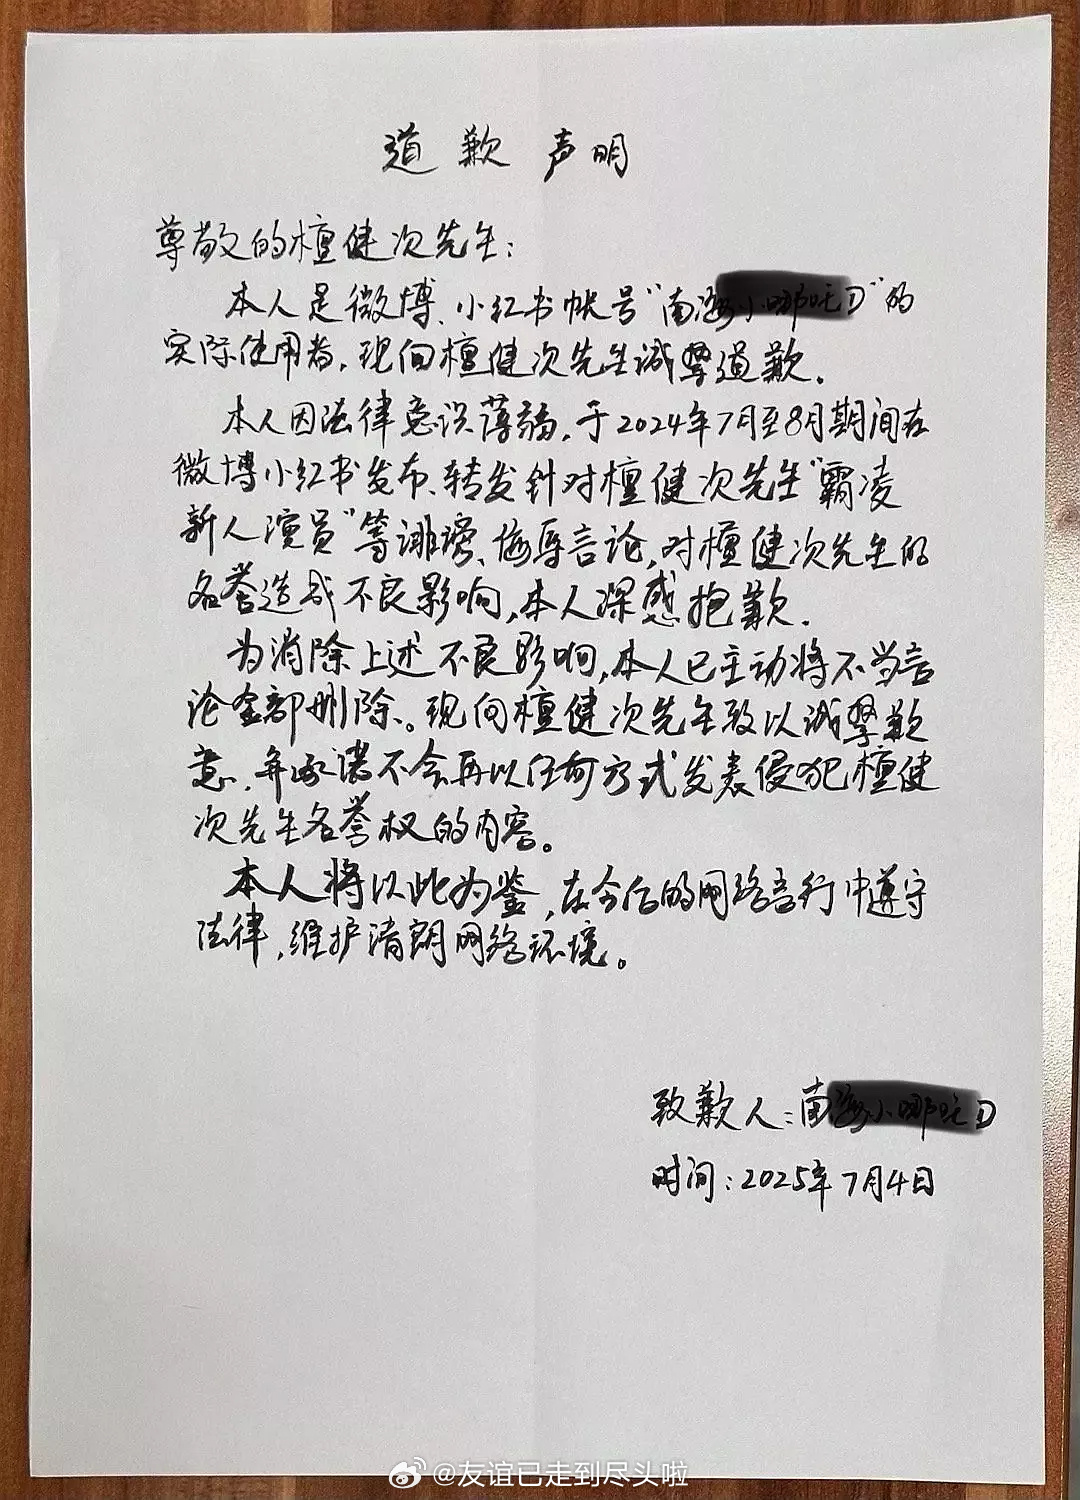 道歉声明
尊敬的檀健次先生：
本人是微博、小红书帐号“南 的
实际使用者，现向檀健次先生诚挚道歉。
本人因法律意识薄弱，于2024年7月至8月期间在
微博小红书发布、转发针对檀健次先生“霸凌
新人演员”等诽谤、侮辱言论，对檀健次先生的
名誉造成不良影响，本人深感抱歉。
为消除上述不良影响，本人已主动将不当言
论全部删除。现向檀健次先生致以诚挚歉
意，并承诺不会再以任何方式发表侵犯檀健
次先生名誉权的内容。
本人将以此为鉴，在今后的网络言行中遵守
法律，维护清朗网络环境。
致歉人：南
时间：2025年7月4日
@友谊已走到尽头啦